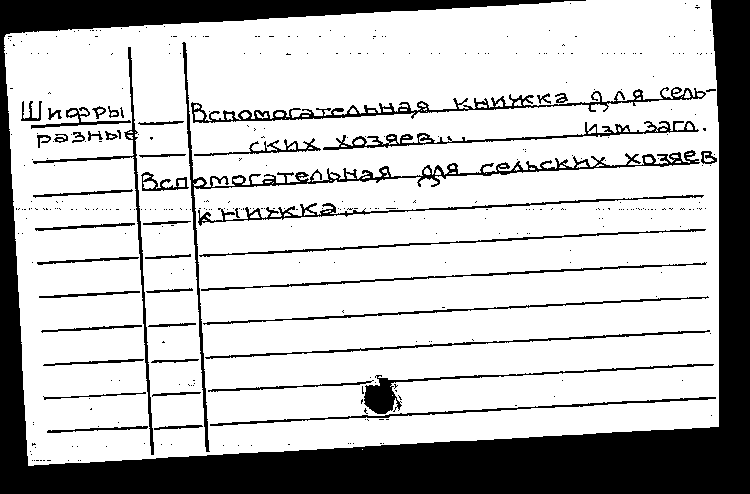 Шифры
разные.
Вспомогательная книжка для сель-
ских хозяев... изм. загл.
Вспомогательная для сельских хозяев
книжка...